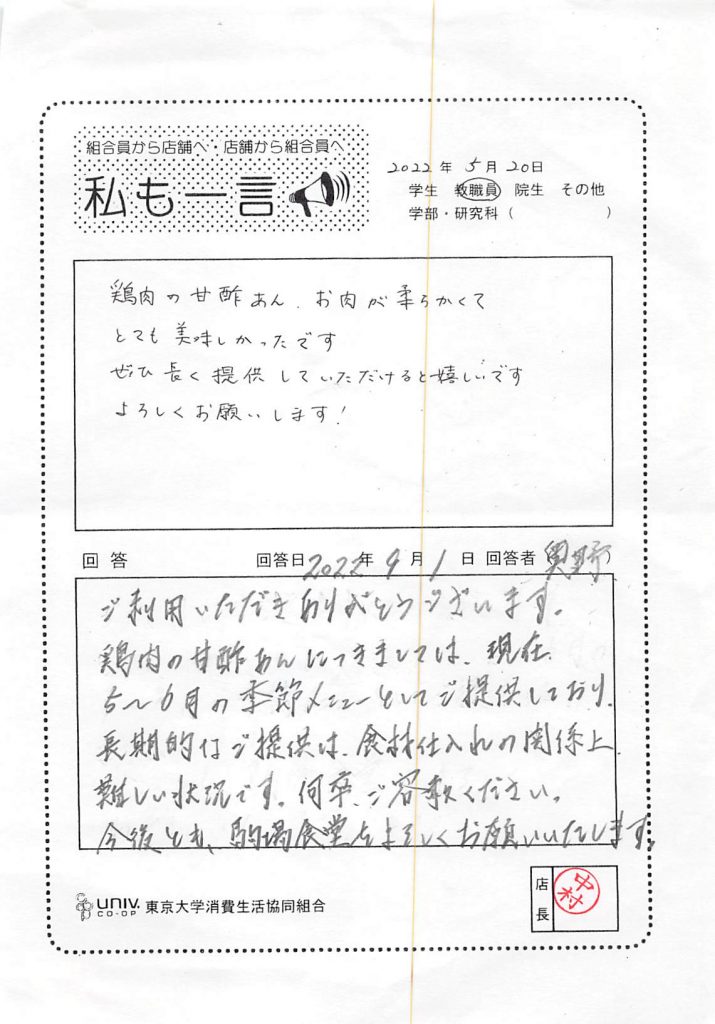 組合員から店舗へ・店舗から組合員へ
私も一言
2022年 5月 20日
学生 教職員 院生 その他
学部・研究科 ( )
鶏肉の甘酢あん、お肉が柔らかくて
とても美味しかったです
ぜひ長く提供していただけると嬉しいです
よろしくお願いします!
回答 回答日 2022年 9月 1日 回答者 (奥野)
ご利用いただきありがとうございます。
鶏肉の甘酢あんにつきましては、現在、
5~6月の季節メニューとしてご提供しており、
長期的なご提供は、食材仕入れの関係上、
難しい状況です。何卒、ご容赦ください。
今後とも、駒場食堂をよろしくお願いいたします。
UNIV. CO-OP 東京大学消費生活協同組合
店長
中村